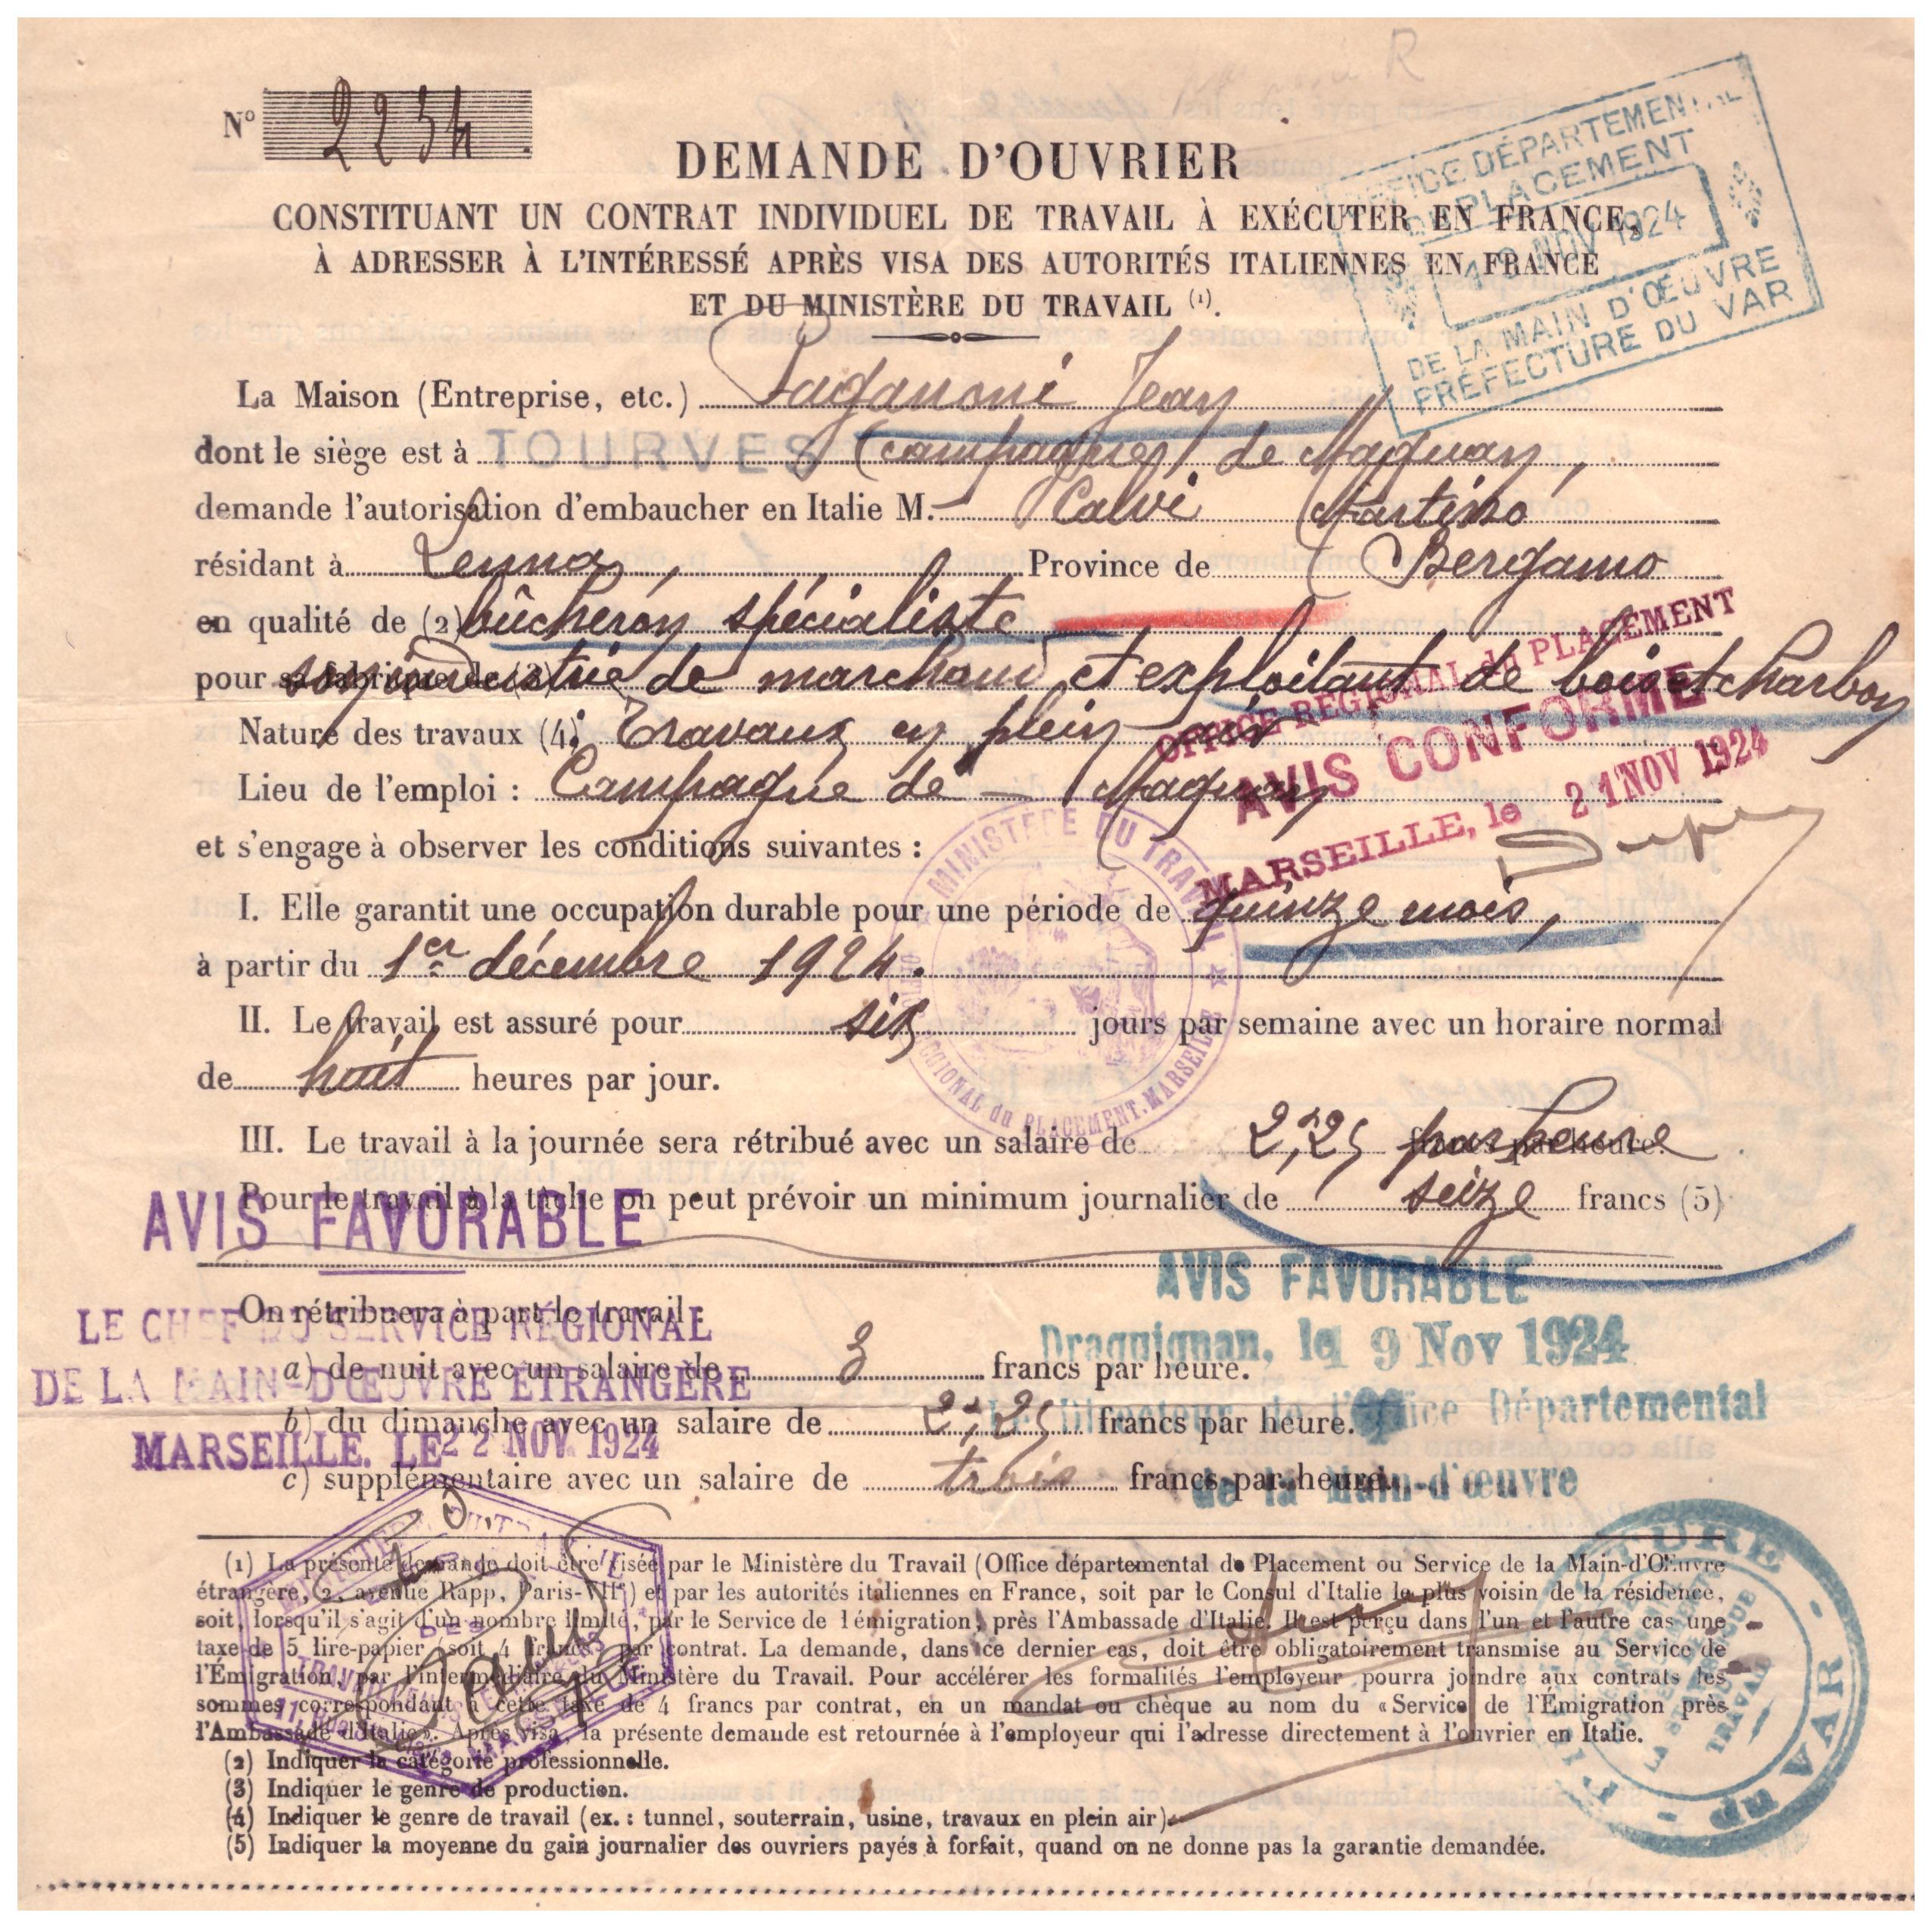 N° 2234
DEMANDE D'OUVRIER
CONSTITUANT UN CONTRAT INDIVIDUEL DE TRAVAIL À EXÉCUTER EN FRANCE,
À ADRESSER À L'INTÉRESSÉ APRÈS VISA DES AUTORITÉS ITALIENNES EN FRANCE
ET DU MINISTÈRE DU TRAVAIL (1).
OFFICE DÉPARTEMENTAL
DE PLACEMENT
NOV 1924
DE LA MAIN D'ŒUVRE
PRÉFECTURE DU VAR
La Maison (Entreprise, etc.) Paganoni Jean
dont le siège est à TOURVES (campagne) de Maguan,
demande l'autorisation d'embaucher en Italie M. Calvi Martino
résidant à Lenna, Province de Bergamo
en qualité de (2) bûcheron spécialiste
pour son industrie de marchand et exploitant de bois et charbon
Nature des travaux (4): Travaux en plein air
Lieu de l'emploi : Campagne de Maguan
et s'engage à observer les conditions suivantes :
OFFICE RÉGIONAL du PLACEMENT
AVIS CONFORME
MARSEILLE, le 21 NOV 1924
I. Elle garantit une occupation durable pour une période de quinze mois,
à partir du 1er décembre 1924.
II. Le travail est assuré pour six jours par semaine avec un horaire normal
de huit heures par jour.
MINISTÈRE DU TRAVAIL
RÉGIONAL du PLACEMENT. MARSEILLE
III. Le travail à la journée sera rétribué avec un salaire de 2,25 francs par heure.
par heure
Pour le travail à la tâche on peut prévoir un minimum journalier de seize francs (5)
AVIS FAVORABLE
LE CHEF DU SERVICE RÉGIONAL
DE LA MAIN-D'ŒUVRE ÉTRANGÈRE
MARSEILLE. LE 22 NOV 1924
AVIS FAVORABLE
Draguignan, le 19 Nov 1924
Le Directeur de l'Office Départemental
de la Main-d'œuvre
On rétribuera à part le travail :
a) de nuit avec un salaire de 3 francs par heure.
b) du dimanche avec un salaire de 2,25 francs par heure.
c) supplémentaire avec un salaire de trois francs par heure.
(1) La présente demande doit être visée par le Ministère du Travail (Office départemental de Placement ou Service de la Main-d'Œuvre
étrangère, 2, avenue Rapp, Paris-VIIe) et par les autorités italiennes en France, soit par le Consul d'Italie le plus voisin de la résidence,
soit, lorsqu'il s'agit d'un nombre limité, par le Service de l'émigration, près l'Ambassade d'Italie. Il est perçu dans l'un et l'autre cas une
taxe de 5 lire-papier (soit 4 francs) par contrat. La demande, dans ce dernier cas, doit être obligatoirement transmise au Service de
l'Émigration, par l'intermédiaire du Ministère du Travail. Pour accélérer les formalités l'employeur pourra joindre aux contrats les
sommes correspondant à cette taxe de 4 francs par contrat, en un mandat ou chèque au nom du « Service de l'Émigration près
l'Ambassade d'Italie ». Après visa, la présente demande est retournée à l'employeur qui l'adresse directement à l'ouvrier en Italie.
(2) Indiquer la catégorie professionnelle.
(3) Indiquer le genre de production.
(4) Indiquer le genre de travail (ex. : tunnel, souterrain, usine, travaux en plein air).
(5) Indiquer la moyenne du gain journalier des ouvriers payés à forfait, quand on ne donne pas la garantie demandée.